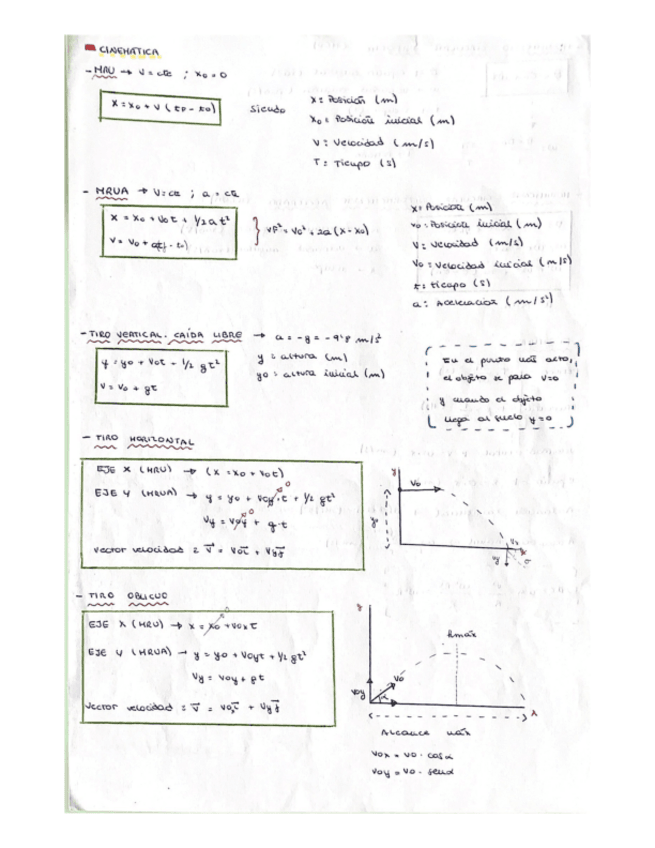 CINEMÁTICA
- MRU → V = cte ; x0 = 0
x = x0 + v (tF - t0)
siendo
x = Posición (m)
x0 = Posición inicial (m)
V = Velocidad (m/s)
T = Tiempo (s)
- MRUA → V = cte ; a = cte
x = x0 + v0t + 1/2 a t²
v = v0 + a(tf - t0)
vF² = v0² + 2a (x - x0)
x = Posición (m)
x0 = Posición inicial (m)
V = Velocidad (m/s)
V0 = Velocidad inicial (m/s)
t = tiempo (s)
a = Aceleración (m/s²)
- TIRO VERTICAL. CAÍDA LIBRE → a = -g = -9'8 m/s²
y = y0 + v0t - 1/2 gt²
V = V0 + gt
y = altura (m)
y0 = altura inicial (m)
En el punto más alto,
el objeto se para v=0
y cuando el objeto
llega al suelo y=0
- TIRO HORIZONTAL
EJE X (MRU) → (x = x0 + v0t)
EJE Y (MRUA) → y = y0 + v0y·t + 1/2 gt²
0
Vy = v0y + g·t
0
vector velocidad = v = v0i + vyj
y
V0
y0
Vx
x
Vy
v
- TIRO OBLICUO
EJE X (MRU) → x = x0 + v0x t
0
EJE Y (MRUA) → y = y0 + v0yt + 1/2 gt²
Vy = v0y + gt
vector velocidad = v = v0xi + vyj
y
hmáx
V0
V0y
α
x
Alcance máx
V0x = V0 · cosα
V0y = V0 · senα